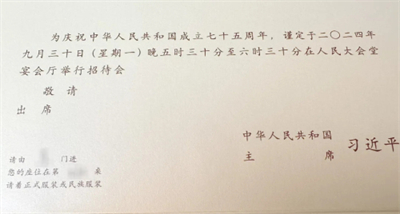 为庆祝中华人民共和国成立七十五周年，谨定于二〇二四年
九月三十日（星期一）晚五时三十分至六时三十分在人民大会堂
宴会厅举行招待会
敬请
出席
中华人民共和国
主席 习近平
请由 门进
您的座位在第 桌
请着正式服装或民族服装